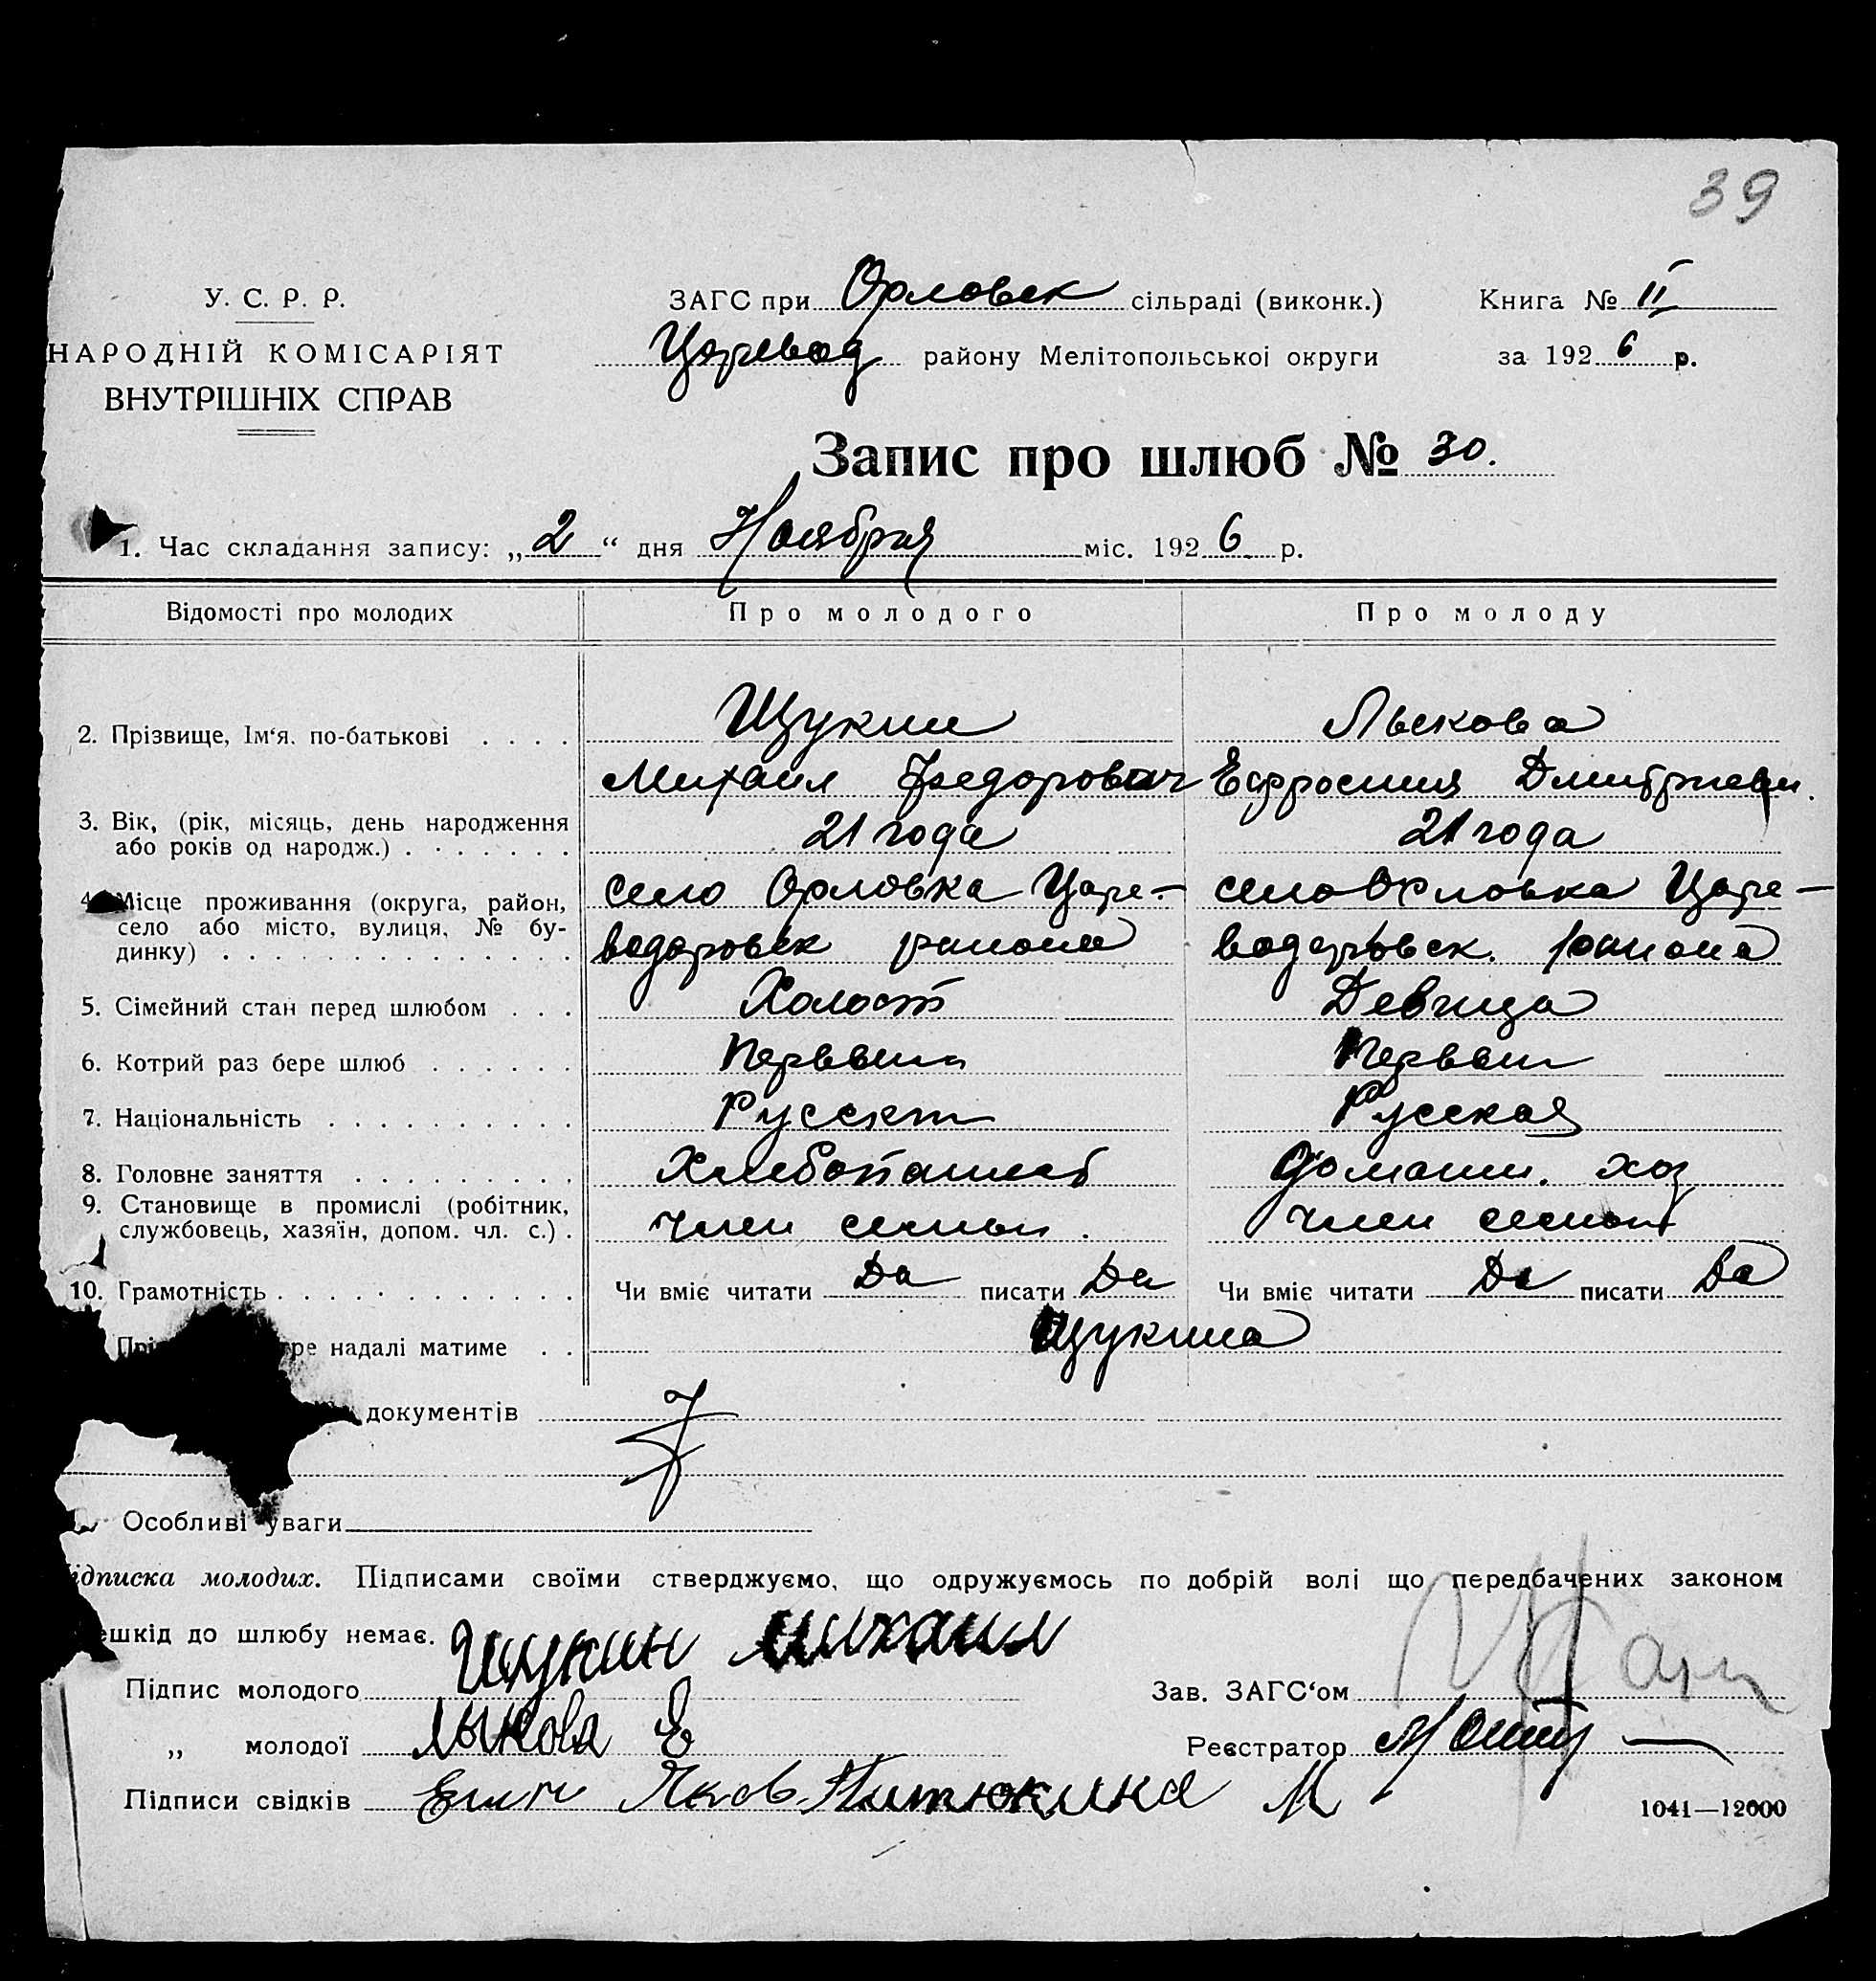 39
У. С. Р. Р.
НАРОДНІЙ КОМІСАРІЯТ
ВНУТРІШНІХ СПРАВ
ЗАГС при Орловск сільраді (виконк.)
Царевод району Мелітопольської округи
Книга № II
за 1926 р.
Запис про шлюб № 30.
1. Час складання запису: „2“ дня Ноября міс. 1926 р.
Відомості про молодих Про молодого Про молоду
2. Прізвище, Ім‘я. по-батькові . . . . Щукин Лыкова
Михаил Федорович Ефросиния Дмитриевн.
3. Вік, (рік, місяць, день народження
або років од народж.) . . . . . . . 21 года 21 года
4. Місце проживання (округа, район, село Орловка Царе- село Орловка Царе-
село або місто, вулиця, № бу-
динку) . . . . . . . . . . . . . . водаровск района водаровск. района
5. Сімейний стан перед шлюбом . . . Холост Девица
6. Котрий раз бере шлюб . . . . . . Первый Первый
7. Національність . . . . . . . . . . Русский Русская
8. Головне заняття . . . . . . . . . Хлебопашест Домашн. хоз
9. Становище в промислі (робітник,
службовець, хазяїн, допом. чл. с.) . член семьи. член семьи
10. Грамотність . . . . . . . . . . . . Чи вміє читати Да писати Да Чи вміє читати Да писати Да
Прі ре надалі матиме . . Щукина
документів
Особливі уваги
ідписка молодих. Підписами своїми стверджуємо, що одружуємось по добрій волі що передбачених законом
ешкід до шлюбу немає.
Підпис молодого Щукин Михаил
Зав. ЗАГС‘ом
„ молодої Лыкова Е
Реєстратор
Підписи свідків Яков Питюкина М
1041—12000